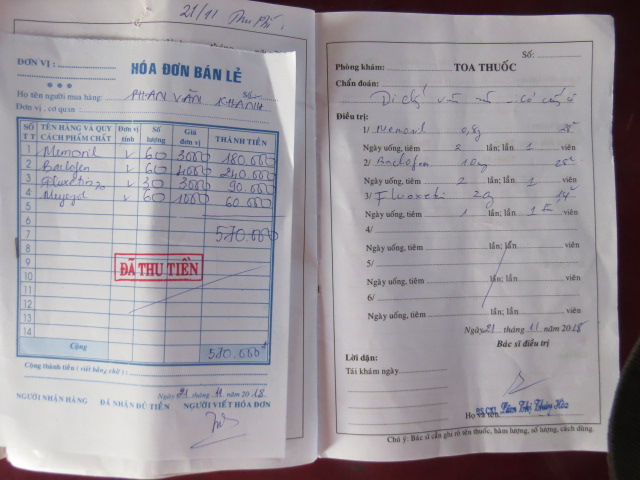 21/11 Thu Phí
ĐƠN VỊ :
HÓA ĐƠN BÁN LẺ
Họ tên người mua hàng: PHAN VĂN KHÁNH Số:
Đơn vị, cơ quan :
SỐ TT TÊN HÀNG VÀ QUY CÁCH PHẨM CHẤT Đơn vị tính Số lượng Giá đơn vị THÀNH TIỀN
1 Memoril v 60 3000 180.000
2 Baclofen v 60 4000 240.000
3 v 30 3000 90.000
4 v 60 1000 60.000
5
6
7 570.000
8
9
ĐÃ THU TIỀN
10
11
12
13
14
Cộng 570.000đ
Cộng thành tiền (viết bằng chữ) :
Ngày 21 tháng 11 năm 2018
NGƯỜI NHẬN HÀNG ĐÃ NHẬN ĐỦ TIỀN NGƯỜI VIẾT HÓA ĐƠN
Số:
Phòng khám: TOA THUỐC
Chẩn đoán:
Điều trị:
1/ Memoril 0,8g
Ngày uống, tiêm 2 lần; lần 1 viên
2/ Baclofen 10mg
Ngày uống, tiêm 2 lần; lần 1 viên
3/ 20 14
Ngày uống, tiêm 1 lần; lần 1 viên
4/
Ngày uống, tiêm lần; lần viên
5/
Ngày uống, tiêm lần; lần viên
6/
Ngày uống, tiêm lần; lần viên
Ngày 21 tháng 11 năm 2018
Bác sĩ điều trị
Lời dặn:
Tái khám ngày
Họ và tên
Chú ý: Bác sĩ cần ghi rõ tên thuốc, hàm lượng, số lượng, cách dùng.